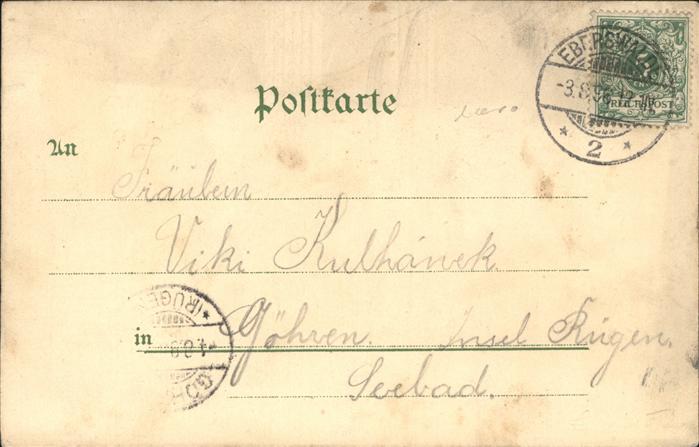 EBERSWALDE
-3.8.96
REICHSPOST
* 2 *
Postkarte
An
Fräulein
Viki Kulhánek
in Göhren. Insel Rügen.
Seebad.
* (RÜGEN) *
GÖHREN